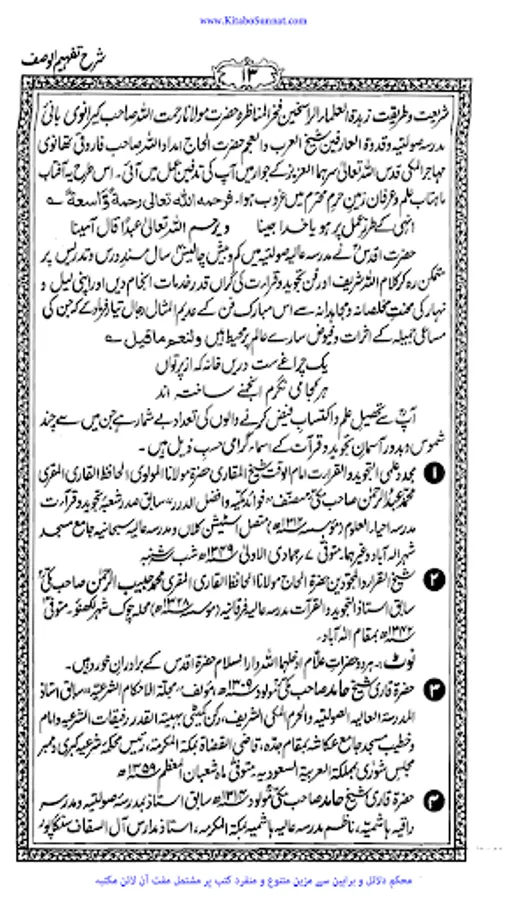 www.KitaboSunnat.com
شرح تفہیم الوصف
۱۳
شریعت و طریقت زبدۃ العلماء الراسخین فخر المناظر و حضرت مولانا رحمت اللہ صاحب کیرانوی بانی
مدرسہ صولتیہ و قدوۃ العارفین شیخ العرب والعجم حضرت الحاج امداد اللہ صاحب فاروقی تھانوی
مہاجر المکی قدس اللہ تعالیٰ سرہما العزیز کے جوار میں آپ کی تدفین عمل میں آئی۔ اس طرح یہ آفتاب
ماہتاب علم و عرفان زمین حرم محترم میں غروب ہوا۔ فرحمه الله تعالى رحمة وّاسعة ؎
انہی کے طرز عمل پر ہو یا خدا جینا ویرحم اللہ تعالیٰ عبدًا قال آمینا
حضرت اقدسؒ نے مدرسہ عالیہ صولتیہ میں کم و بیش چالیس سال مسند درس و تدریس پر
متمکن رہ کر کلام اللہ شریف اور فن تجوید و قراءت کی گراں قدر خدمات انجام دیں اور اپنی لیل و
نہار کی محنت مخلصانہ و مجاہدانہ سے اس مبارک فن کے عدیم المثال رجال تیار فرما دیے کہ جن کی
مساعی جمیلہ کے اثرات و فیوض سارے عالم پر محیط ہیں ولنعم ماقيل ؎
یک چراغے ست دریں خانہ کہ از پرتو آں
ہر کجا می نگرم انجمنے ساختہ اند
آپؒ سے تحصیل علم و اکتساب فیض کرنے والوں کی تعداد بے شمار ہے جن میں سے چند
شموس و بدور آسمان تجوید و قرآت کے اسماء گرامی حسب ذیل ہیں۔
۱ مجدد علمی التجوید والقراءت امام الوقت شیخ المقاری حضرۃ مولانا المولوی الحافظ القاری المقری
محمد عبدالرحمٰن صاحب مکیؒ مصنف فوائد مکیہ و افضل الدرر سابق صدر شعبۂ تجوید و قراءت
مدرسہ احیاء العلوم متصل اسٹیشن کلاں و مدرسہ عالیہ سبحانیہ جامع مسجد
شہر الہ آباد وغیرہما متوفی ۷ جمادی الاولیٰ ۱۳۴۹ھ شب شنبہ
۲ شیخ القراء والمجودین حضرۃ الحاج مولانا الحافظ القاری المقری محمد حبیب الرحمٰن صاحب مکیؒ
سابق استاذ التجوید والقرآت مدرسہ عالیہ فرقانیہ (مؤسسہ ۱۳۲۸ھ) محلہ چوک شہر لکھنؤ۔ متوفی
بمقام الہ آباد۔
نوٹ:۔ ہر دو حضرات علّام ادخلہما اللہ دار السلام حضرۃ اقدس کے برادران خورد ہیں۔
۳ حضرۃ قاری شیخ حامد صاحب مکیؒ مولود ۱۳۰۹ھ مؤلف مجلۃ الاحکام الشرعیہ سابق استاذ
المدرسۃ العالیہ الصولتیہ والحرم المکی الشریف، رکن کمیٹی بہیئتہ القدر و تحقیقات الشرعیہ و امام
و خطیب مسجد جامع عکاشہ بمقام جدہ، قاضی القضاۃ بمکۃ المکرمۃ، رئیس محکمۂ شرعیہ کبریٰ و ممبر
مجلس شوریٰ بمملکۃ العربیۃ السعودیہ متوفی ماہ شعبان المعظم ۱۳۵۹ھ
۴ حضرۃ قاری شیخ حامد صاحب مکیؒ مولود سابق استاذ بمدرسہ صولتیہ و مدرسہ
راقیہ ہاشمیہ، ناظم مدرسہ عالیہ ہاشمیہ بمکۃ المکرمہ، استاذ مدارس آل السقاف سنگاپور
محکم دلائل و براہین سے مزین متنوع و منفرد کتب پر مشتمل مفت آن لائن مکتبہ